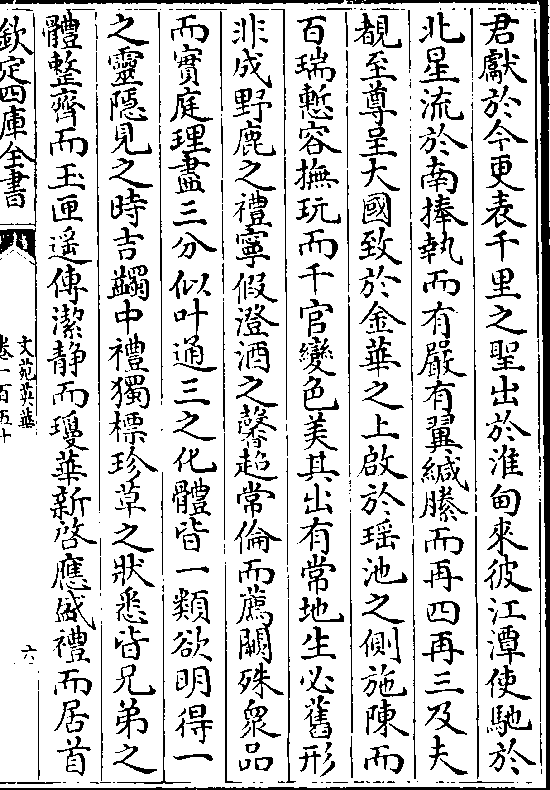 君獻於今更表千里之聖出於淮甸來彼江潭使馳於
北星流於南捧執而有嚴有翼緘縢而再四再三及夫
覩至尊呈大國致於金華之上啟於瑶池之側施陳而
百瑞慙容撫玩而千官變色美其出有常地生必舊形
非成野鹿之禮寧假澄酒之馨超常倫而薦闕殊衆品
而實庭理盡三分似叶通三之化體皆一類欲明得一
之靈隠見之時吉蠲中禮獨標珍草之狀悉皆兄弟之
體整齊而玉匣遥傳潔静而瓊華新啓應盛禮而居首
欽定四庫全書
文苑英華
卷一百五十
六